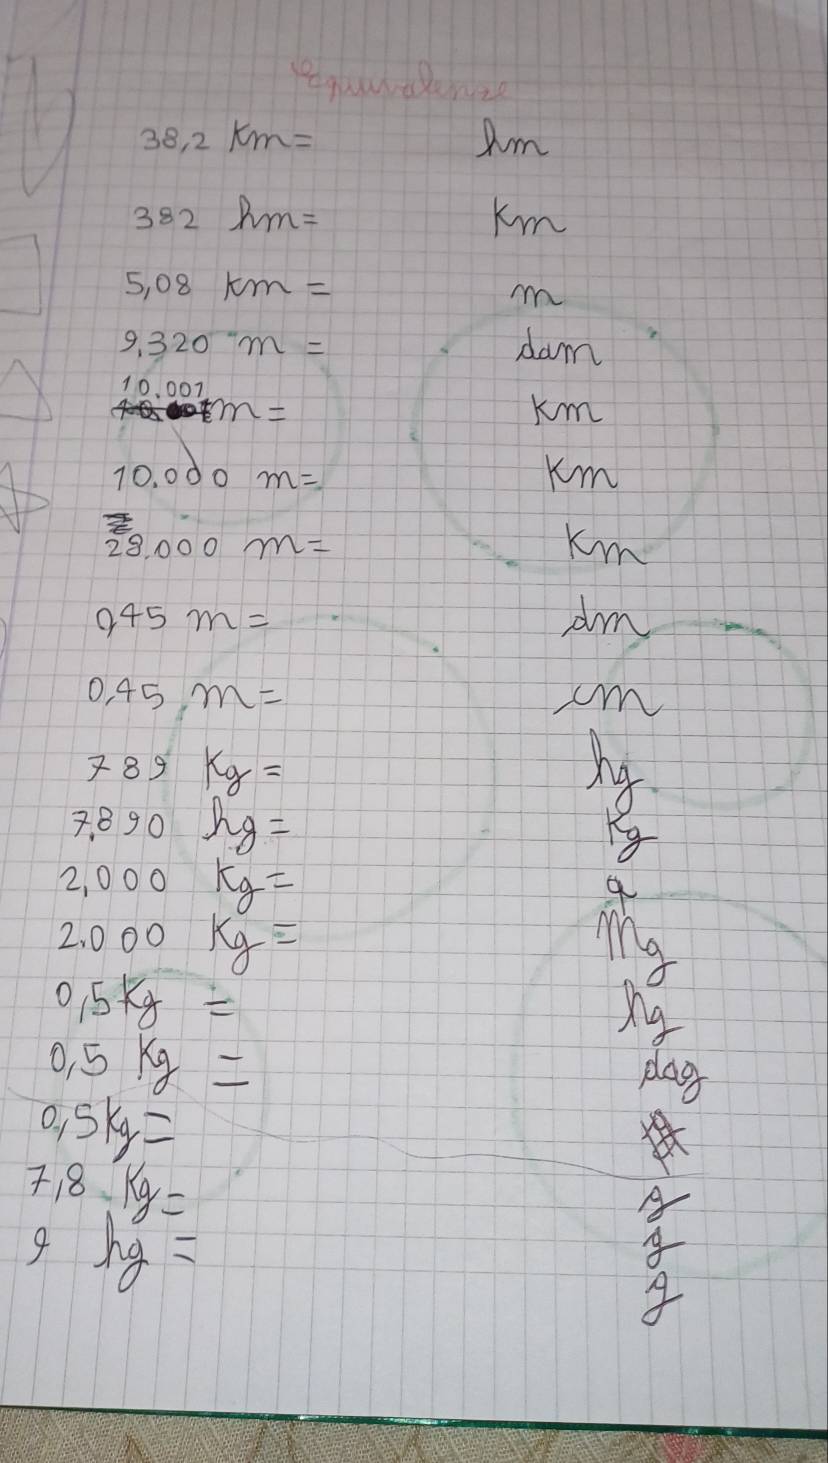 Equivalenze
38,2 Km= hm
382 hm= Km
5,08 Km= m
9.320 m= dam
10.001 m= Km
10.000 m= Km
28.000 m= Km
0,45 m= dm
0,45 m= cm
789 Kg= hg
7.890 hg= Kg
2.000 Kg= q
2.000 Kg= Mg
0,5 Kg= hg
0,5 Kg= dag
0,5 Kg= g
7,8 Kg= g
9 hg= g